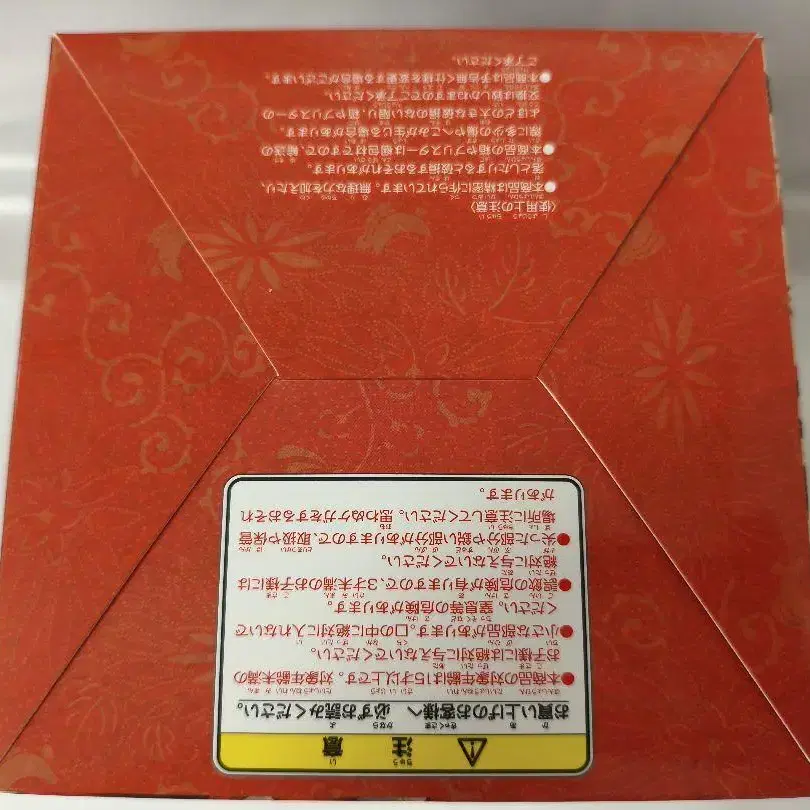 ⚠ 注意
お買い上げのお客様へ 必ずお読みください。
●本商品の対象年齢は15才以上です。対象年齢未満の
お子様には絶対に与えないでください。
●小さな部品があります。口の中に絶対に入れないで
ください。窒息等の危険があります。
●誤飲の危険が有りますので、3才未満のお子様には
絶対に与えないでください。
●尖った部分や鋭い部分がありますので、取扱や保管
場所に注意してください。思わぬケガをするおそれ
があります。
〈使用上の注意〉
●本商品は精密に作られています。無理な力を加えたり、
落としたりすると破損するおそれがあります。
●本商品の箱やブリスターは梱包材ですので、輸送の
際に多少の傷やへこみが生じる場合があります。
よほどの大きな破損のない限り、箱やブリスターの
交換は致しかねますのでご了承ください。
●本商品は予告無く仕様を変更する場合がございます。
ご了承ください。